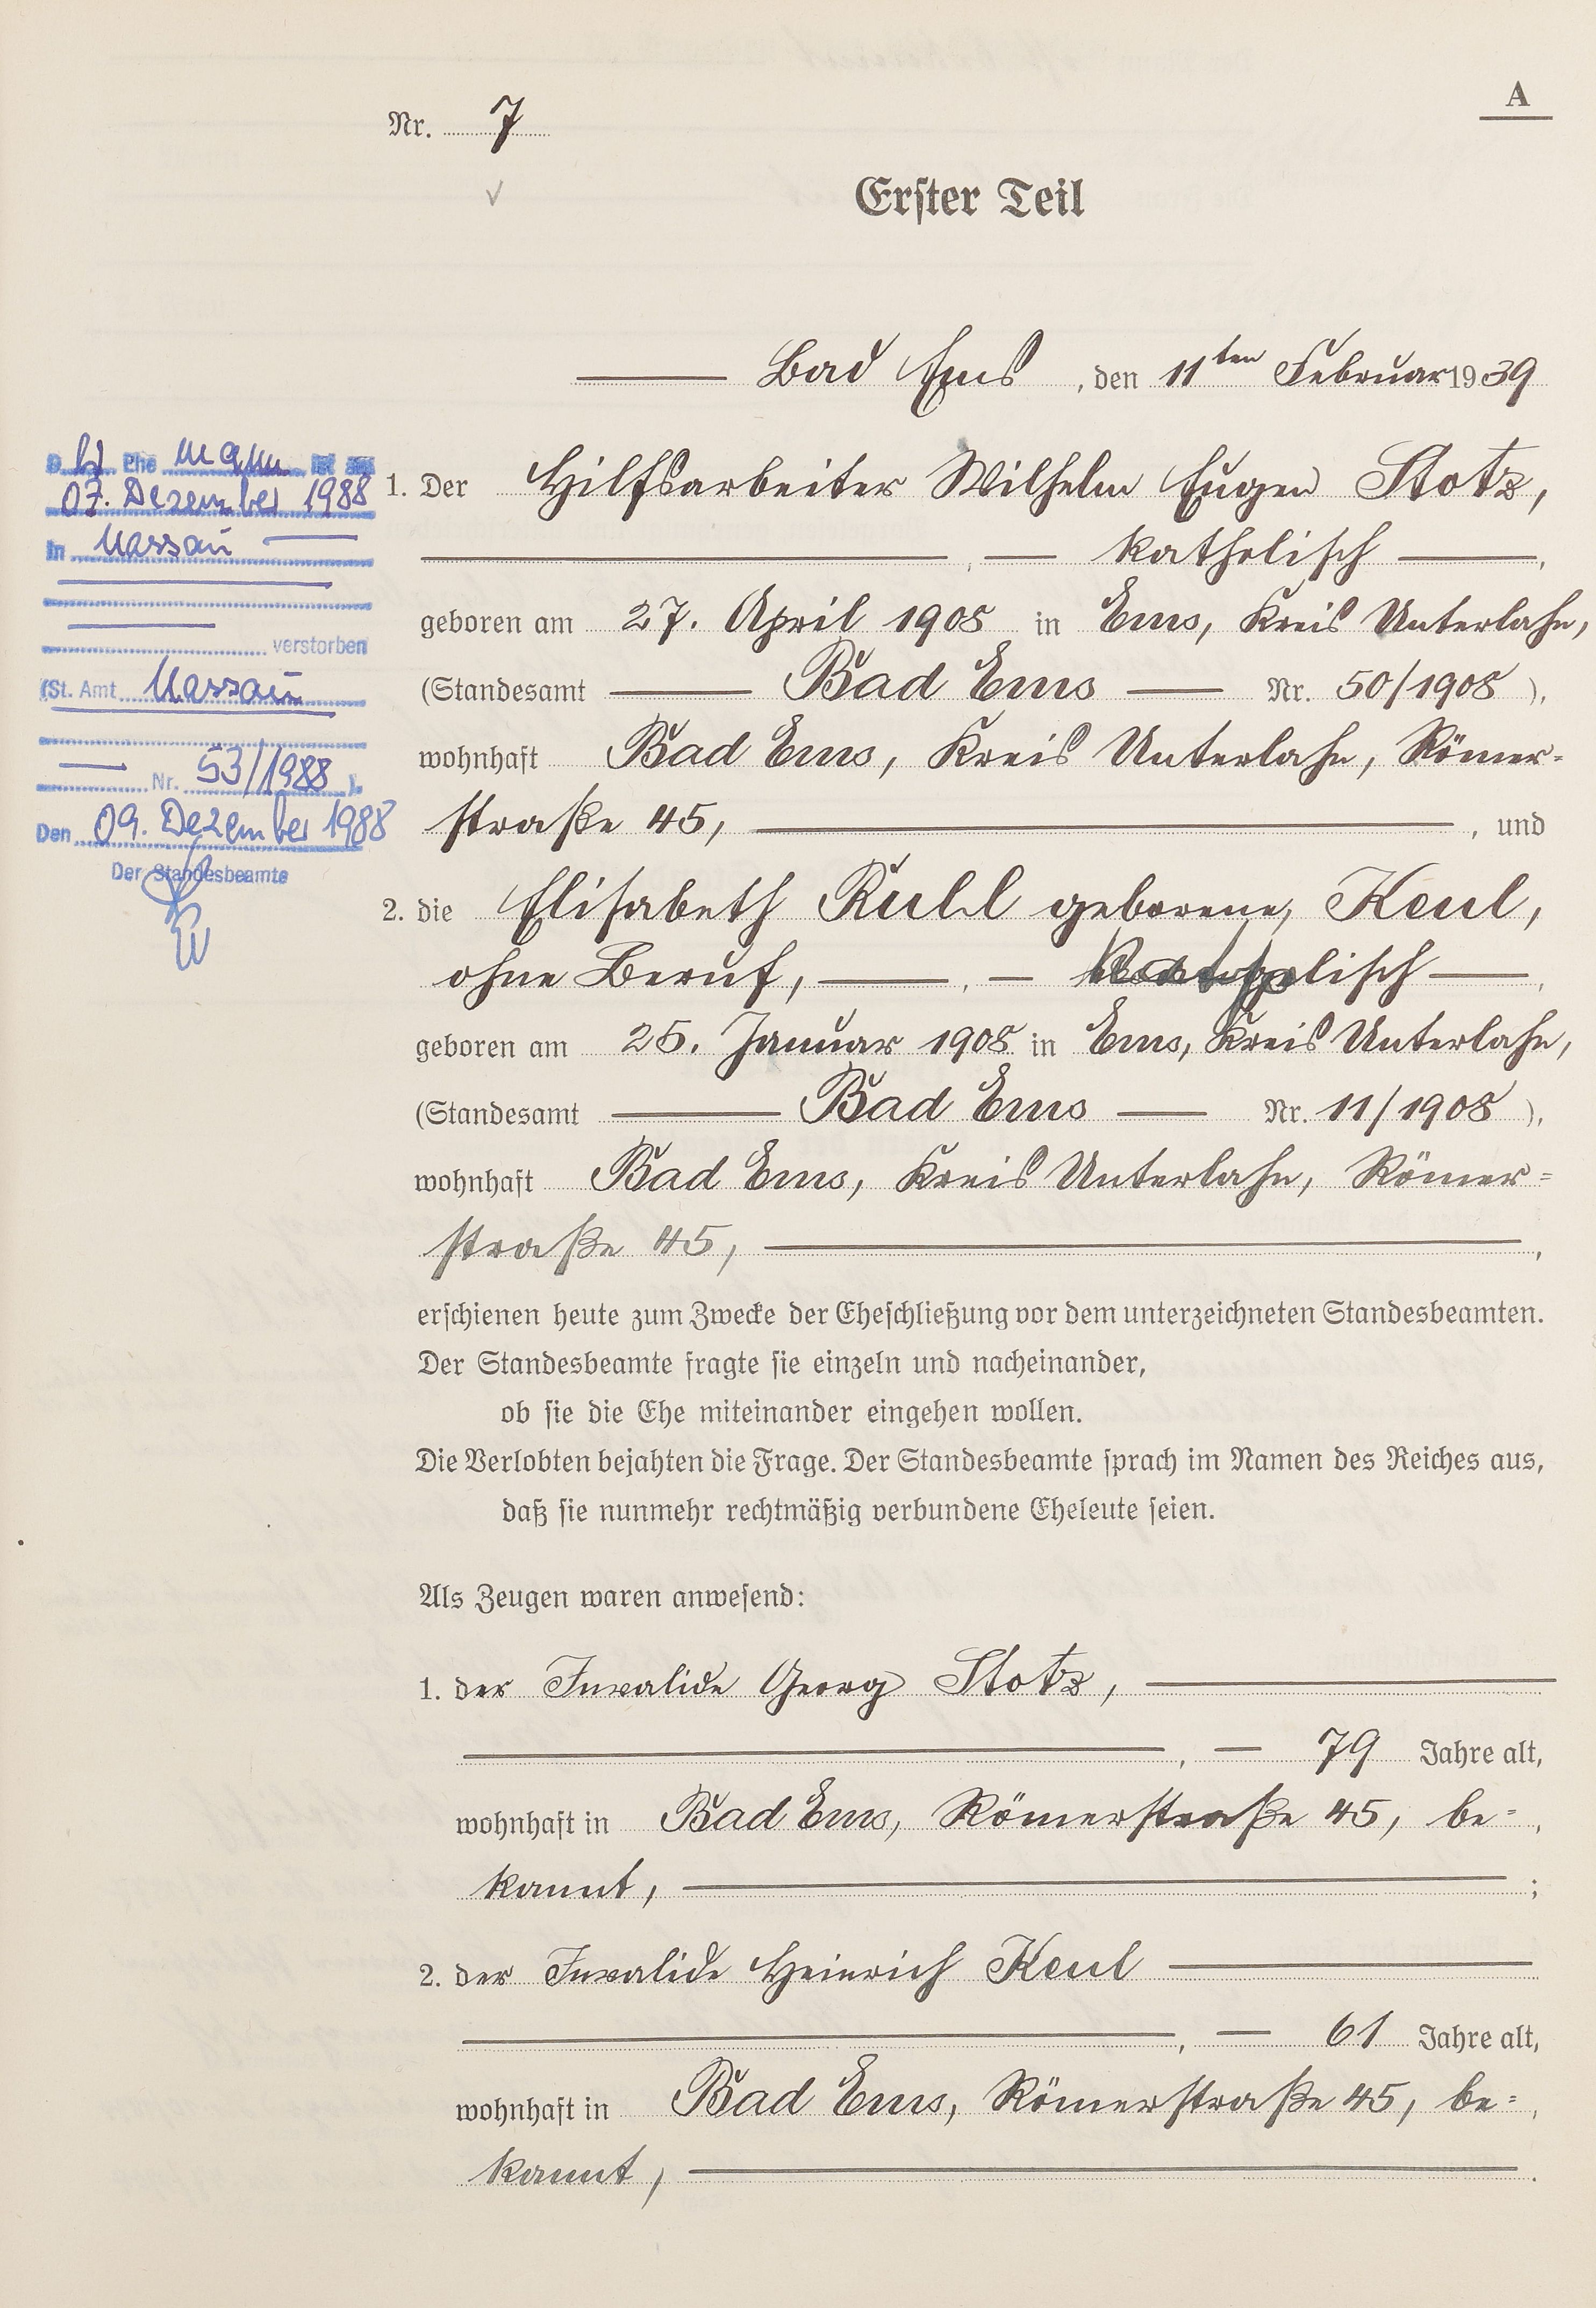 A
Nr. 7
Erster Teil
Bad Ems, den 11ten Februar 1939
Der Ehemann ist am
07. Dezember 1988
in Nassau
verstorben
(St. Amt Nassau
Nr. 53/1988).
Den 09. Dezember 1988
Der Standesbeamte
1. Der Hilfsarbeiter Wilhelm Eugen Stotz,
, — katholisch —,
geboren am 27. April 1908 in Ems, Kreis Unterlahn,
(Standesamt — Bad Ems — Nr. 50/1908),
wohnhaft Bad Ems, Kreis Unterlahn, Römer=
straße 45, —, und
2. die Elisabeth Rull geborene, Keul,
ohne Beruf, —, — katholisch —,
geboren am 25. Januar 1908 in Ems, Kreis Unterlahn,
(Standesamt — Bad Ems — Nr. 11/1908),
wohnhaft Bad Ems, Kreis Unterlahn, Römer=
straße 45, —,
erschienen heute zum Zwecke der Eheschließung vor dem unterzeichneten Standesbeamten.
Der Standesbeamte fragte sie einzeln und nacheinander,
ob sie die Ehe miteinander eingehen wollen.
Die Verlobten bejahten die Frage. Der Standesbeamte sprach im Namen des Reiches aus,
daß sie nunmehr rechtmäßig verbundene Eheleute seien.
Als Zeugen waren anwesend:
1. der Invalide Georg Stotz, —
—, — 79 Jahre alt,
wohnhaft in Bad Ems, Römerstraße 45, be=,
kannt, —;
2. der Invalide Heinrich Keul —
—, — 61 Jahre alt,
wohnhaft in Bad Ems, Römerstraße 45, be=,
kannt, —.